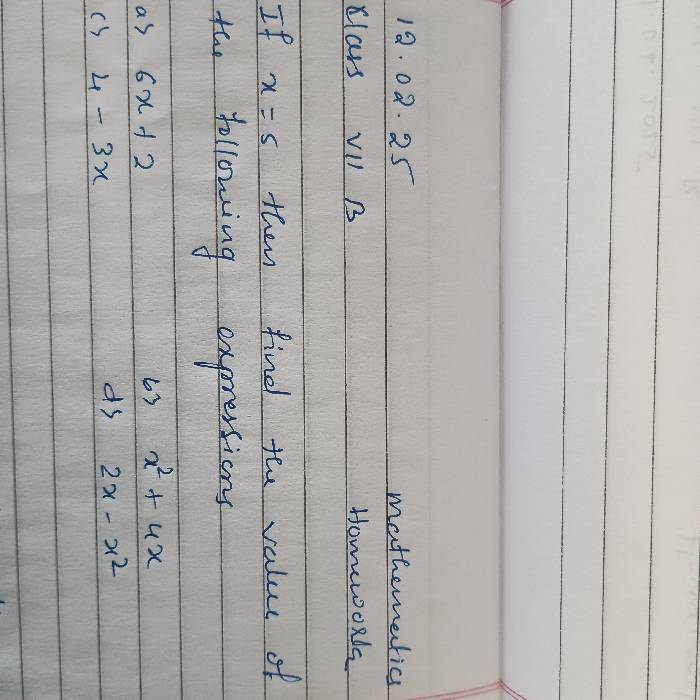 12.02.25 Mathematics
Class VII B Homework
If x = 5 then find the value of
the following expressions
a) 6x + 2 b) x² + 4x
c) 4 - 3x d) 2x - x²